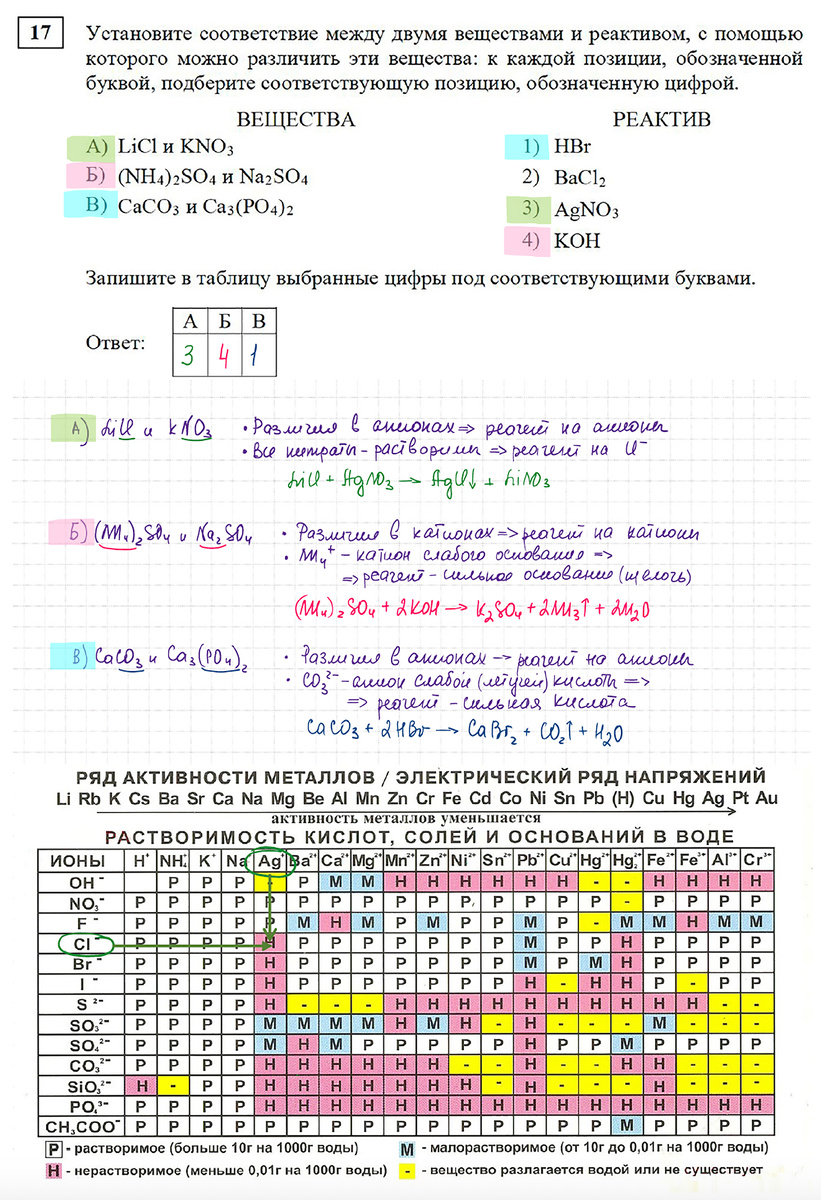 17
Установите соответствие между двумя веществами и реактивом, с помощью
которого можно различить эти вещества: к каждой позиции, обозначенной
буквой, подберите соответствующую позицию, обозначенную цифрой.
ВЕЩЕСТВА РЕАКТИВ
А) LiCl и KNO₃ 1) HBr
Б) (NH₄)₂SO₄ и Na₂SO₄ 2) BaCl₂
В) CaCO₃ и Ca₃(PO₄)₂ 3) AgNO₃
4) KOH
Запишите в таблицу выбранные цифры под соответствующими буквами.
Ответ:
А Б В
3 4 1
А) LiCl и KNO₃ • Различия в анионах => реагент на анионы
• Все нитраты - растворимы => реагент на Cl⁻
LiCl + AgNO₃ → AgCl↓ + LiNO₃
Б) (NH₄)₂SO₄ и Na₂SO₄ • Различия в катионах => реагент на катионы
• NH₄⁺ - катион слабого основания =>
=> реагент - сильное основание (щелочь)
(NH₄)₂SO₄ + 2KOH → K₂SO₄ + 2NH₃↑ + 2H₂O
В) CaCO₃ и Ca₃(PO₄)₂ • Различия в анионах → реагент на анионы
• CO₃²⁻ - анион слабой (летучей) кислоты =>
=> реагент - сильная кислота
CaCO₃ + 2HBr → CaBr₂ + CO₂↑ + H₂O
РЯД АКТИВНОСТИ МЕТАЛЛОВ / ЭЛЕКТРИЧЕСКИЙ РЯД НАПРЯЖЕНИЙ
Li Rb K Cs Ba Sr Ca Na Mg Be Al Mn Zn Cr Fe Cd Co Ni Sn Pb (H) Cu Hg Ag Pt Au
активность металлов уменьшается
РАСТВОРИМОСТЬ КИСЛОТ, СОЛЕЙ И ОСНОВАНИЙ В ВОДЕ
ИОНЫ H⁺ NH₄⁺ K⁺ Na Ag Ba²⁺ Ca²⁺ Mg²⁺ Mn²⁺ Zn²⁺ Ni²⁺ Sn²⁺ Pb²⁺ Cu²⁺ Hg²⁺ Hg₂²⁺ Fe²⁺ Fe³⁺ Al³⁺ Cr³⁺
OH⁻ P P P - P M M H H H H H H - - H H H H
NO₃⁻ P P P P P P P P P P P P P P P - P P P P
F⁻ P P P P P M H M P M P P M P - M M H M M
Cl⁻ P P P P H P P P P P P P M P P H P P P P
Br⁻ P P P P H P P P P P P P M P M H P P P P
I⁻ P P P P H P P P P P P P H - H H P - P P
S²⁻ P P P P H - - - H H H H H H H H H H - -
SO₃²⁻ P P P P M M M M H M H - H - - - M - - -
SO₄²⁻ P P P P M H M P P P P P H P P M P P P P
CO₃²⁻ P P P P H H H H H H - - H - - H H - - -
SiO₃²⁻ H - P P H H H H H H H - H - - - H - - -
PO₄³⁻ P P P P H H H H H H H H H H H H H H H H
CH₃COO⁻ P P P P P P P P P P P P P P P M P P P P
Р - растворимое (больше 10г на 1000г воды) М - малорастворимое (от 10г до 0,01г на 1000г воды)
Н - нерастворимое (меньше 0,01г на 1000г воды) - - вещество разлагается водой или не существует